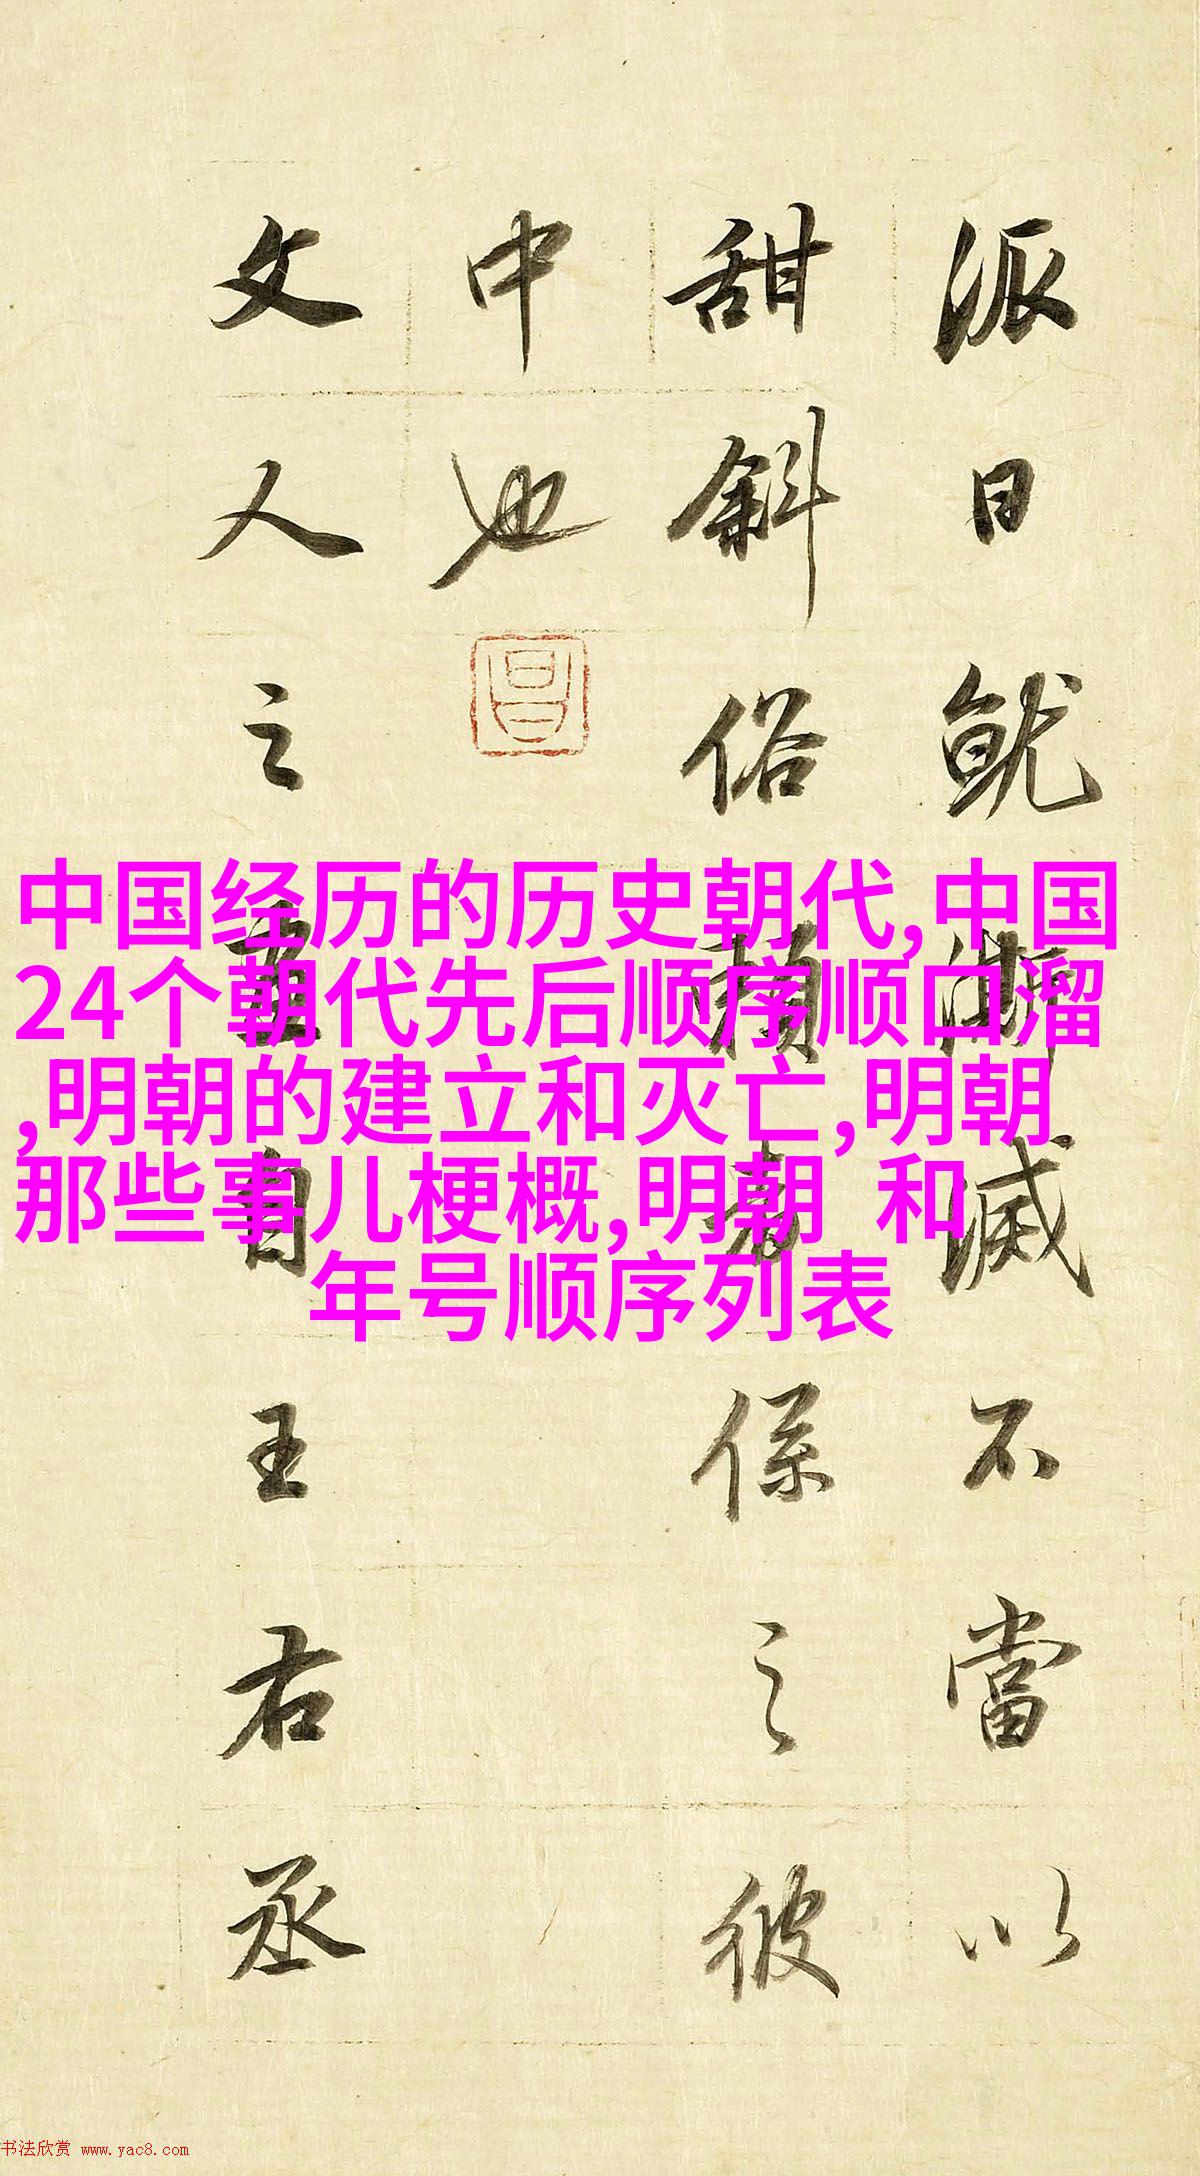 派日就澌滅不當以
甜斜俗賴者係之彼
中也
昌
文人之畫自王右丞
中国经历的历史朝代,中国
24个朝代先后顺序顺口溜
,明朝的建立和灭亡,明朝
那些事儿梗概,明朝 和
年号顺序列表
书法欣赏 www.yac8.com